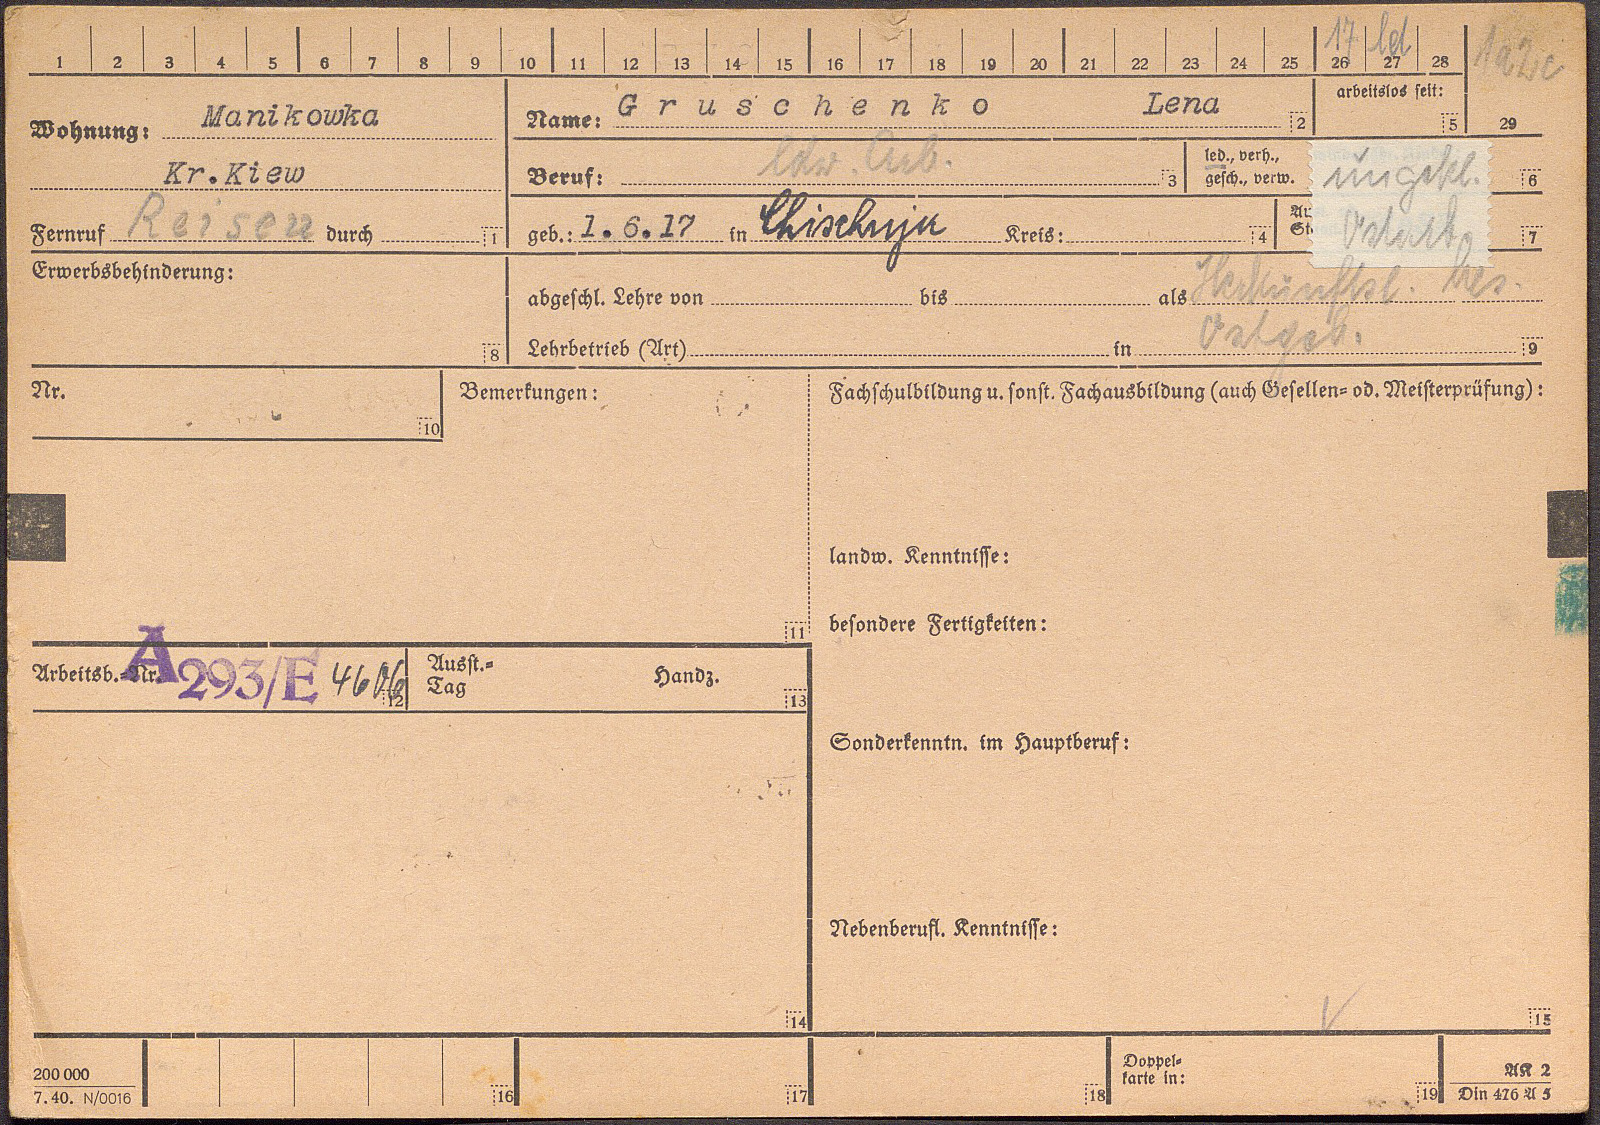 1 2 3 4 5 6 7 8 9 10 11 12 13 14 15 16 17 18 19 20 21 22 23 24 25 26 27 28 29
17 led
1a2c
Wohnung: Manikowka
Kr.Kiew
Fernruf Reisen durch 1
Name: Gruschenko Lena 2
arbeitslos seit: 5
Beruf: ldw. Arb. 3
led., verh.,
gesch., verw.
ungekl. 6
Ostarb. 7
geb.: 1.6.17 in Kreis: 4
Erwerbsbehinderung:
8
abgeschl. Lehre von bis als Herkunftsl. bes.
Ostgeb.
Lehrbetrieb (Art) in 9
Nr.
10
Bemerkungen:
11
Fachschulbildung u. sonst. Fachausbildung (auch Gesellen= od. Meisterprüfung):
landw. Kenntnisse:
besondere Fertigkeiten:
Arbeitsb.=Nr. A 293/E 4606 12
Ausst.=
Tag
Handz. 13
Sonderkenntn. im Hauptberuf:
Nebenberufl. Kenntnisse:
14
15
200 000
7. 40. N/0016
16
17
18
Doppel=
karte in:
19
AK 2
Din 476 A 5